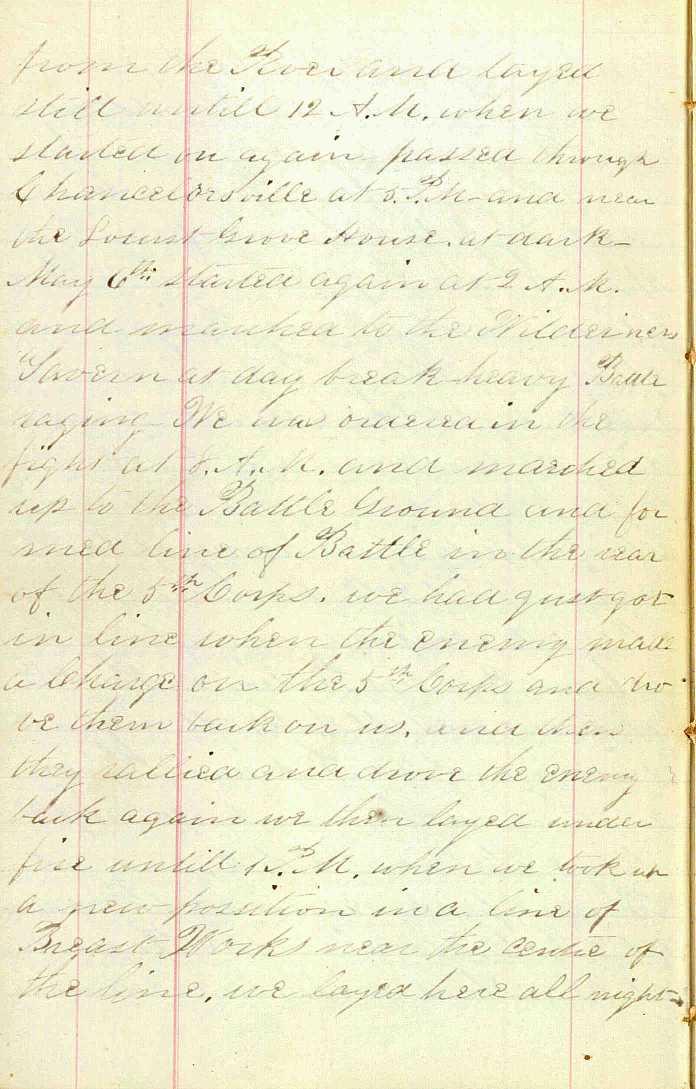 from the River and layed
still untill 12 A.M. when we
started on again passed through
Chancelorsville at 5. P.M. and near
the Locust Grove House. at dark–
May 6th. started again at 2 A.M.
and marched to the Wilderness
Tavern at day break heavy Battle
raging We was ordered in the
fight at 8. A.M. and marched
up to the Battle Ground and for
med line of Battle in the rear
of the 5th Corps. we had just got
in line when the enemy made
a Charge on the 5th. Corps and dro
ve them back on us. and then
they rallied and drove the enemy
back again we then layed under
fire untill 1. P.M. when we took up
a new possition in a line of
Breast Works near the centre of
the line. we layed here all night–